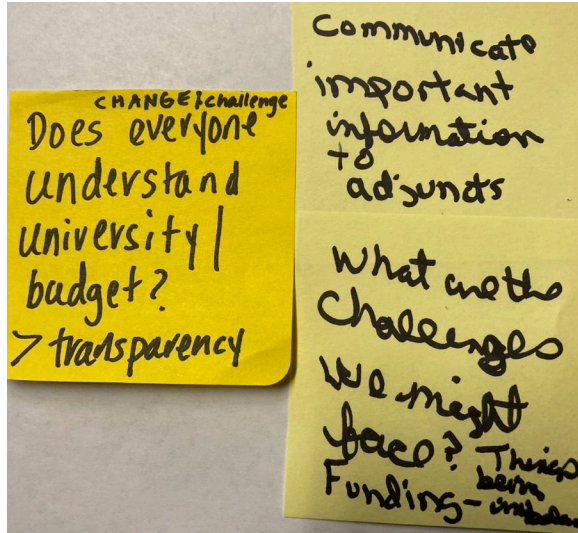 CHANGE: challenge
Does everyone
understand
university|
budget?
> transparency
Communicate
important
information
to
adjuncts
What are the
challenges
we might
face? Things
being
Funding -